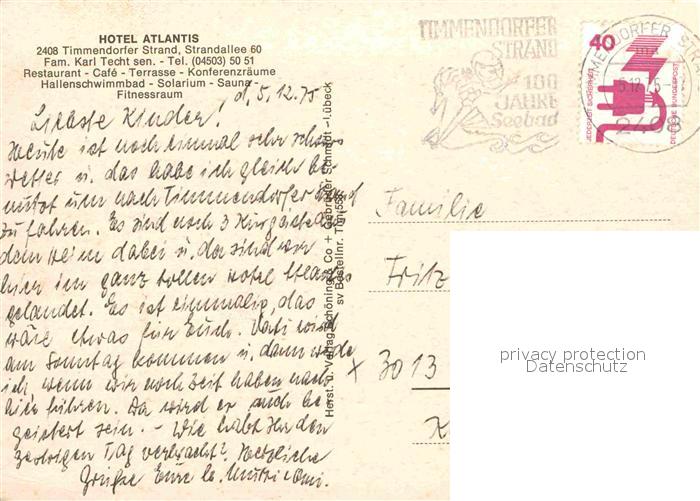 HOTEL ATLANTIS
2408 Timmendorfer Strand, Strandallee 60
Fam. Karl Techt sen. - Tel. (04503) 50 51
Restaurant - Café - Terrasse - Konferenzräume
Hallenschwimmbad - Solarium - Sauna
Fitnessraum
d. 5.12.75
Liebste Kinder!
Heute ist noch einmal sehr schönes
Wetter u. das habe ich gleich be-
nutzt um nach Timmendorfer Strand
zu fahren. Es sind noch 3 Kurgäste
dabei u. da sind wir
hier im ganz tollen Hotel Atlantis
gelandet. Es ist einmalig, das
wäre etwas für Euch. Vati wird
am Sonntag kommen u. dann werde
ich, wenn wir noch Zeit haben nach
hier führen. Da wird er auch be-
geistert sein. - Wie habt Ihr den
gestrigen Tag verbracht? Herzliche
Grüße Eure lb. Mutti + Omi.
Herst. u. Verlag Schöning & Co + Gebrüder Schmidt - Lübeck
sv Bestellnr. Tim
TIMMENDORFER
STRAND
100
JAHRE
Seebad
40
JEDERZEIT SICHERHEIT
DEUTSCHE BUNDESPOST
TIMMENDORFER STRAND
5.12.75
2408
Familie
Fritz
x 3013
privacy protection
Datenschutz